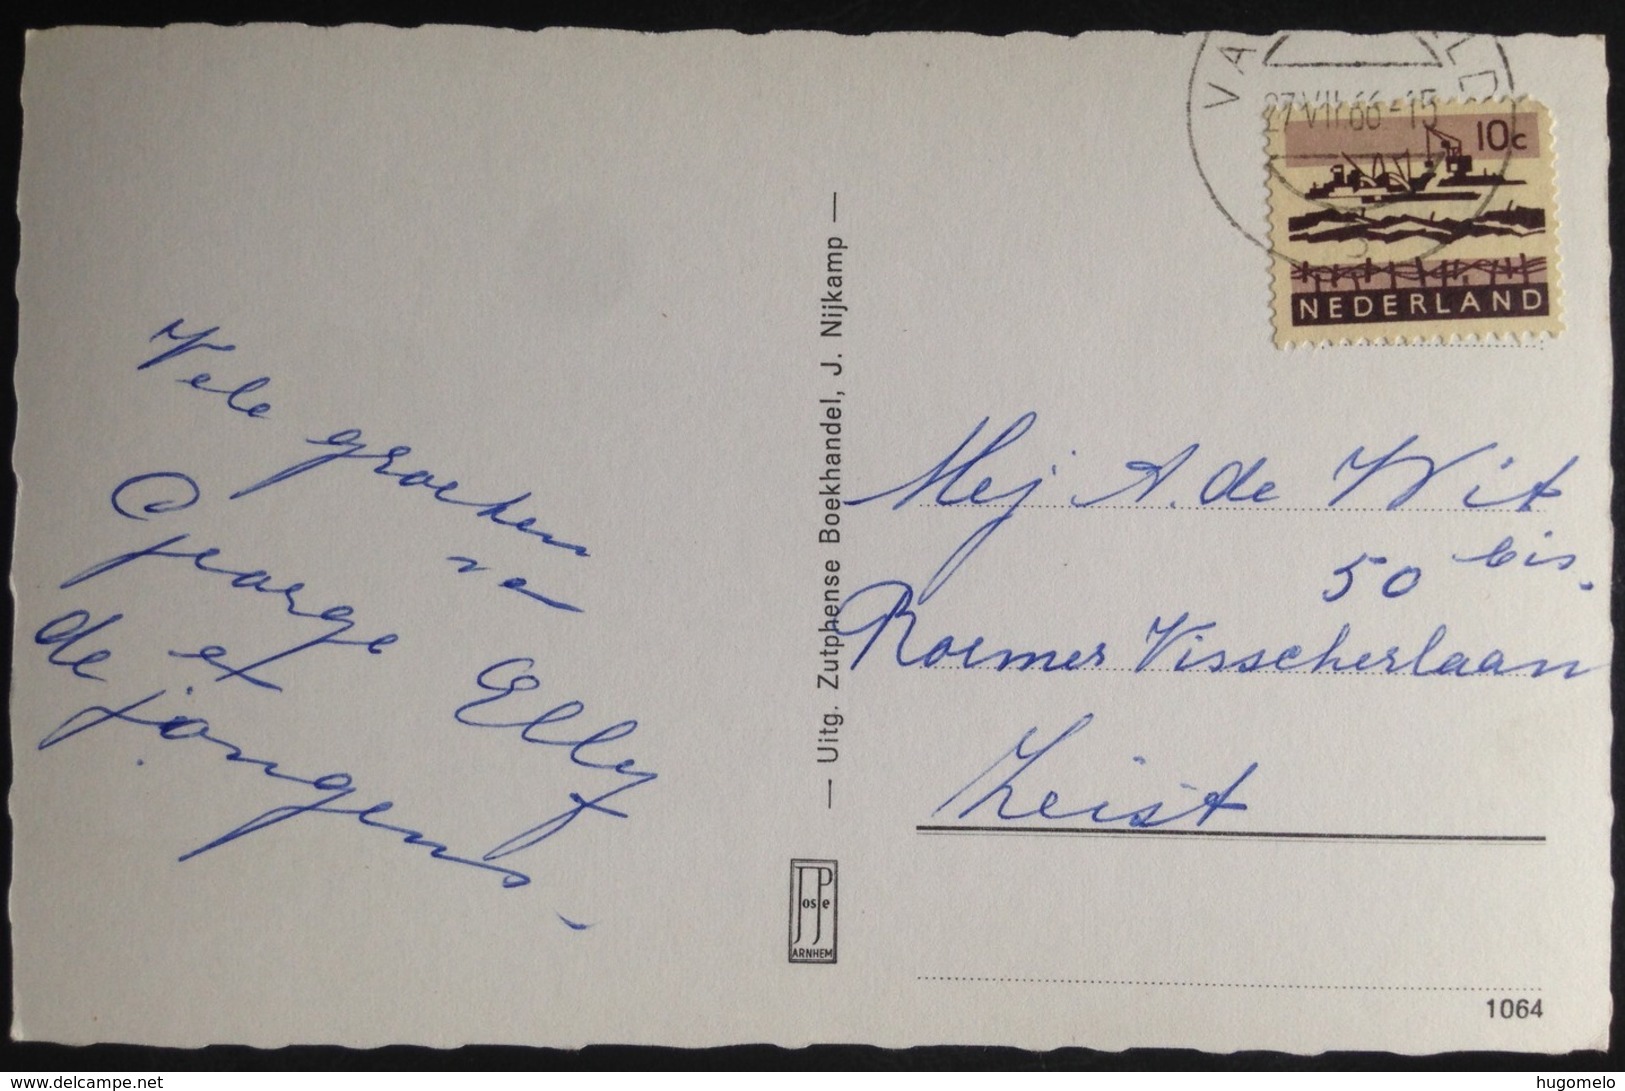 Vele groeten
va
George Elly
et
de jongens.
— Uitg. Zutphense Boekhandel, J. Nijkamp —
JosPe
ARNHEM
27 VII.66-15
10c
NEDERLAND
Mej A. de Wit
50 bis.
Roemer Visscherlaan
Zeist
1064
www.delcampe.net
hugomelo